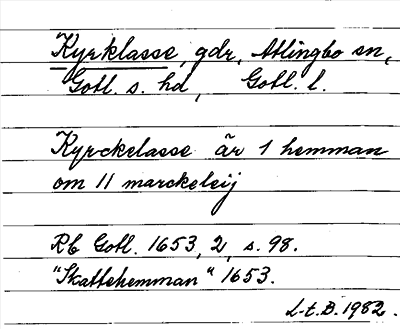 Kyrklasse, gdr, Atlingbo sn,
Gotl. s. hd, Gotl. l.
Kyrckelasse är 1 hemman
om 11 marckeleij
Rb Gotl. 1653, 2, s. 98.
"Skattehemman" 1653.
L-t. B. 1982.